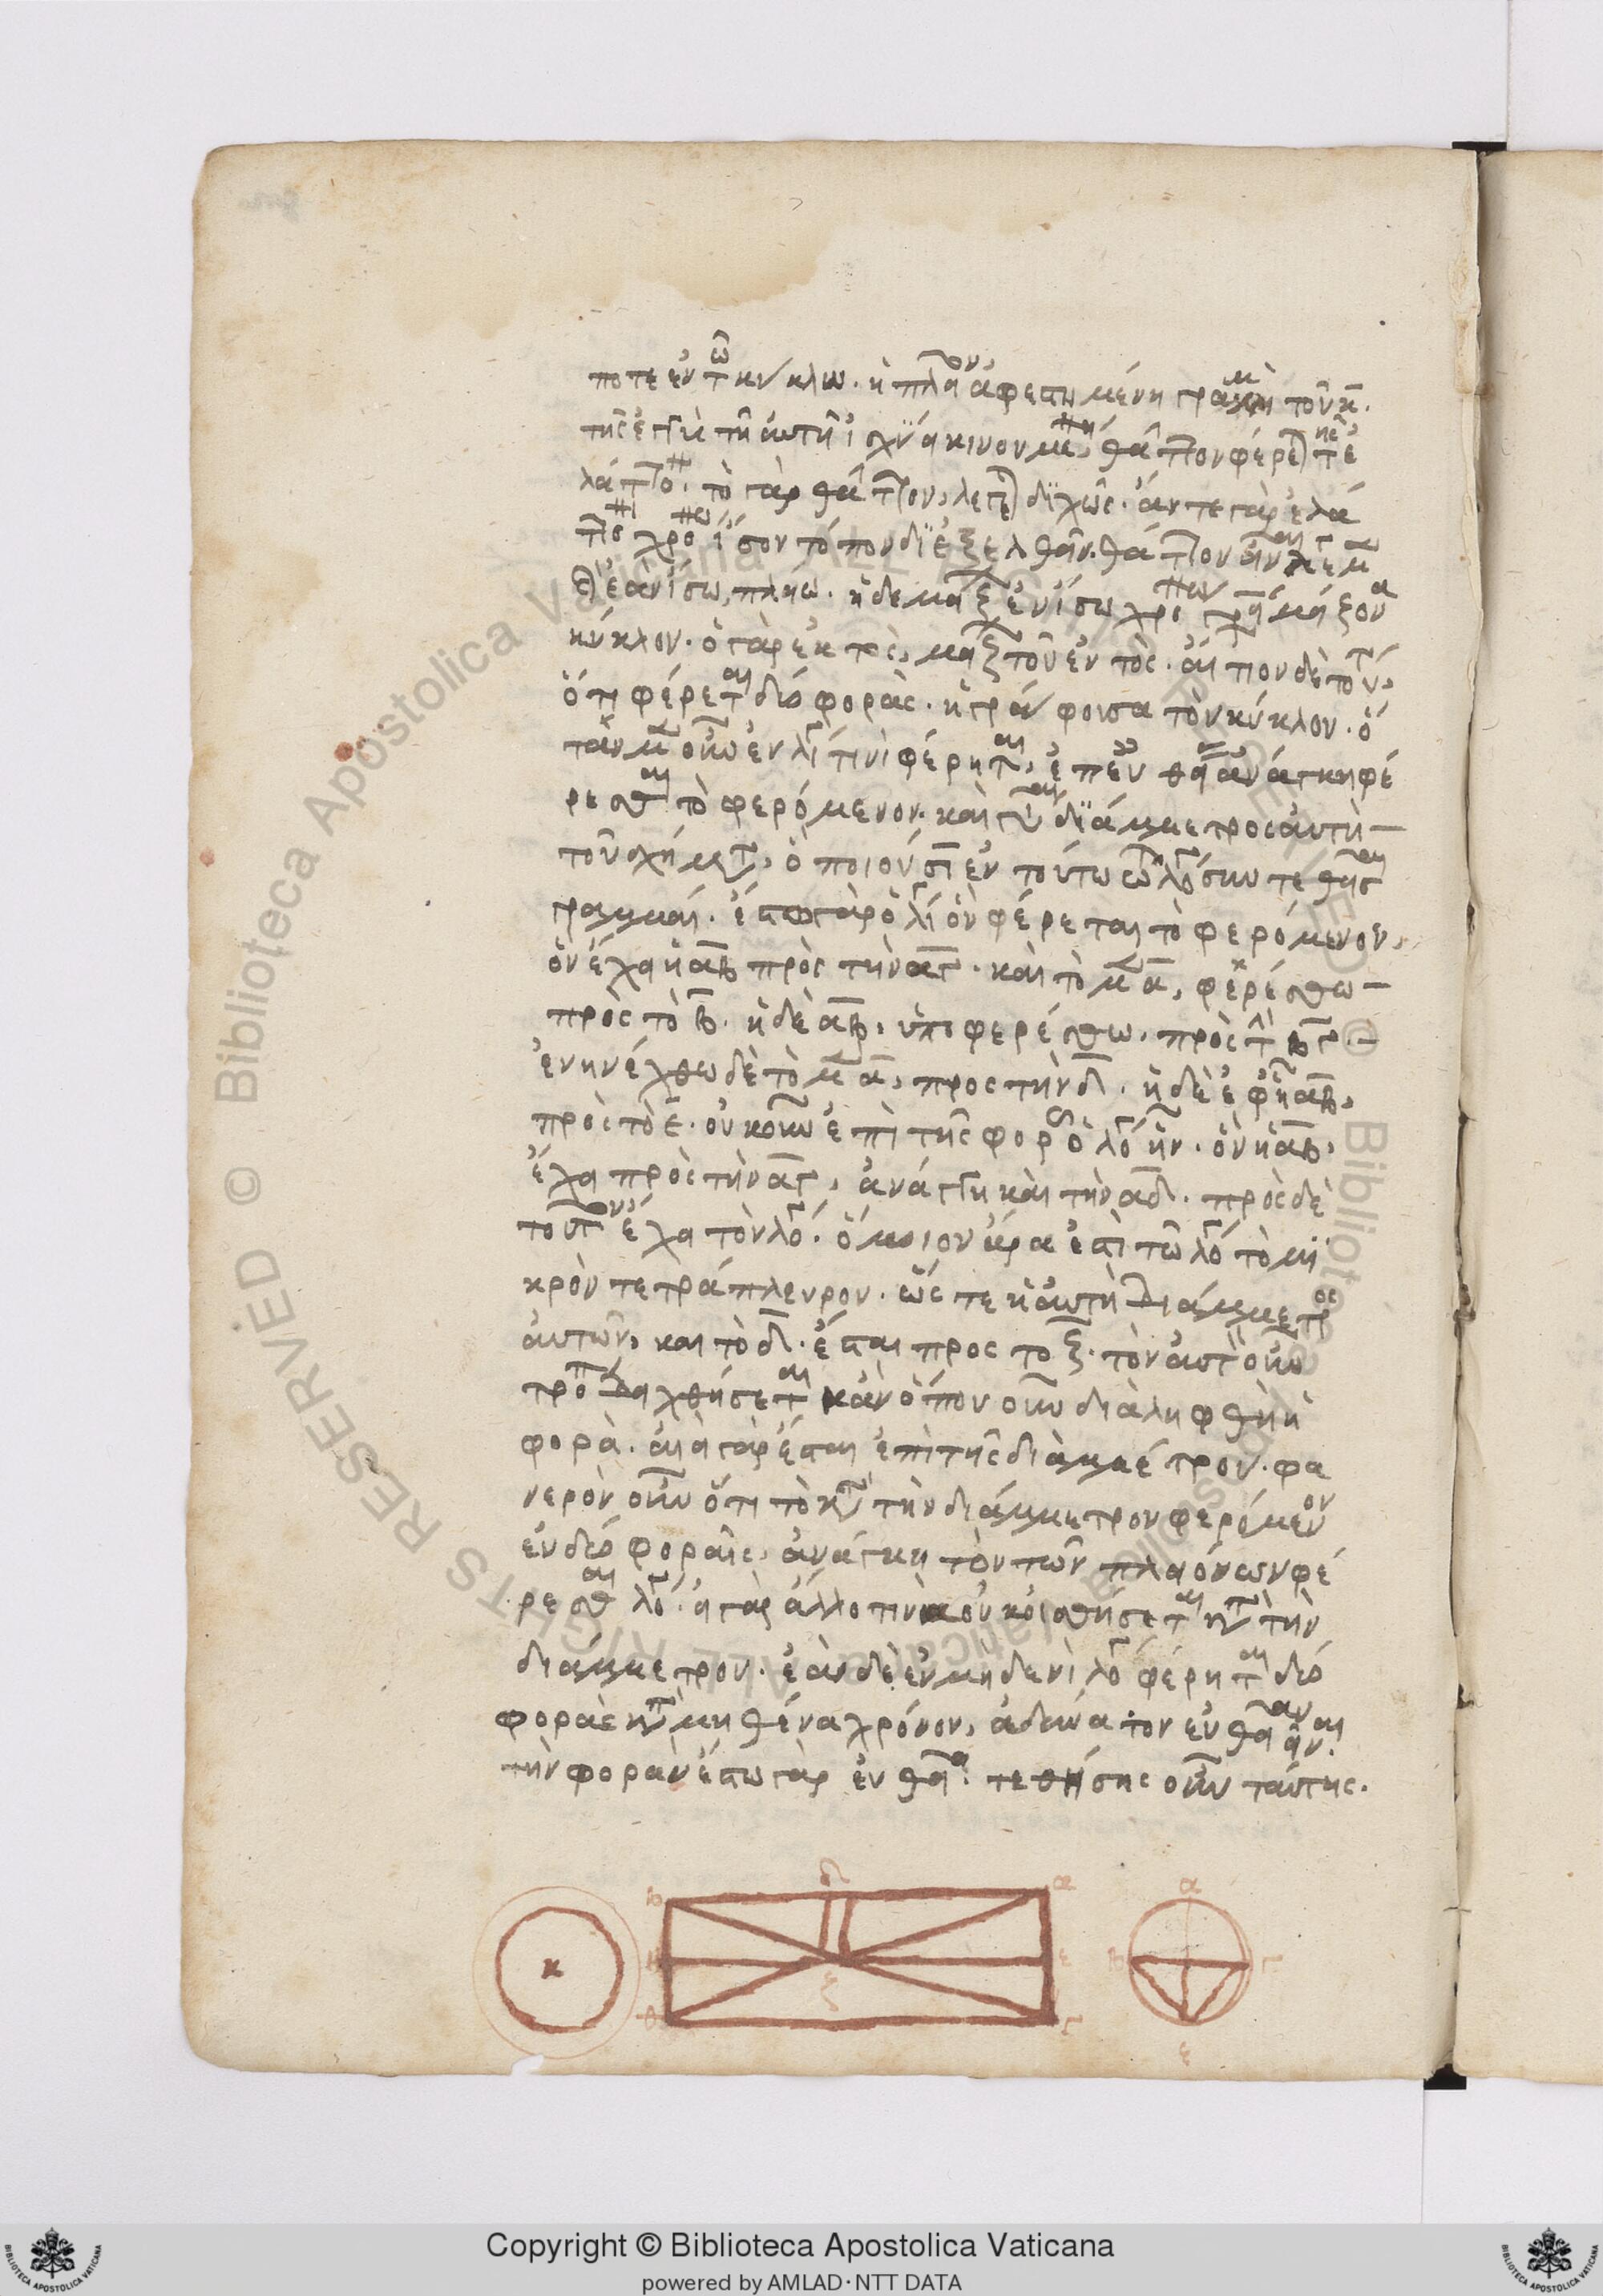 ποτε ἐν τῶ κύκλω. ἡ πλεῖον ἀφεστωμένη γραμμὴ τοῦ κ.
τῆς ἐγγὺς τῆ αὐτῆ ἰσχύϊ κινουμένης, θᾶττον φέρεται τῆς ἐ
λάττονος. τὸ γὰρ θᾶττον, λέγεται διχῶς. ἄν τε γὰρ ἐλά
ττονι χρόνω ἴσον τόπον διεξέλθη. θᾶττον εἶναι λέγομεν
ἐὰν ἴσω, πλείω. ἡ δὲ μείζων ἐν ἴσω χρόνω γράφει μείζονα
κύκλον. ὁ γὰρ ἐκτὸς, μείζων τοῦ ἐντός. αἴτιον δὲ τούτων,
ὅτι φέρεται δύο φορὰς. ἡ γράφουσα τὸν κύκλον. ὅ
ταν μὲν οὖν ἐν λόγω τινὶ φέρηται, ἐπ' εὐθείας ἀνάγκη φέ
ρεσθαι τὸ φερόμενον. καὶ γίνεται διάμμετρος αὐτὴ
τοῦ σχήματος, ὃ ποιοῦσιν ἐν τούτω τῶ λόγω συντεθεῖσαι
γραμμαί. ἔστω γὰρ ὁ λόγος ὃν φέρεται τὸ φερόμενον,
ὃν ἔχει ἡ αβ πρὸς τὴν αγ. καὶ τὸ μὲν α, φερέσθω
πρὸς τὸ β. ἡ δὲ αβ, ὑποφερέσθω. πρὸς τὴν βγ.
ἐνηνέχθω δὲ τὸ μὲν α, προς τὴν δ. ἡ δὲ ἐφ' ἧ αβ,
πρὸς τὸ ε. οὐκοῦν ἐπὶ τῆς φορᾶς ὁ λόγος ἦν. ὃν ἡ αβ,
ἔχει πρὸς τὴν αγ, ἀνάγκη καὶ τὴν αδ. πρὸς δὲ
τοῦτον ἔχει τὸν λόγον. ὅμοιον ἄρα ἐστὶ τῶ λόγω τὸ μι
κρὸν τετράπλευρον. ὥς τε ἡ αὐτὴ διάμμετρος
αὐτῶν, και τὸ δ. ἔσται προς το ζ. τὸν αὐτὸν οὖν
τρόπον δειχθήσεται κἂν ὅπου οὖν διαληφθῆ ἡ
φορὰ. αἰεὶ γὰρ ἔσται ἐπὶ τῆς διαμμέτρου. φα
νερὸν οὖν ὅτι τὸ κατὰ τὴν διάμμετρον φερόμενον
ἐν δύο φοραῖς, ἀνάγκη τὸν τῶν πλειόνων φέ
ρεσθαι λόγον. εἰ γὰρ ἄλλο τινὰ οὐκ οἰσθήσεται κατὰ τὴν
διάμμετρον. ἐὰν δὲ ἐν μηδενὶ λόγω φέρηται δύο
φορὰς κατὰ μηθένα χρόνον, ἀδύνατον εὐθεῖαν εἶναι
τὴν φορὰν ἔστω γὰρ εὐθεῖα. τεθήσης οὖν ταύτης.
β δ α α
κ η ε β γ
ζ
θ γ ε
Copyright © Biblioteca Apostolica Vaticana
powered by AMLAD·NTT DATA